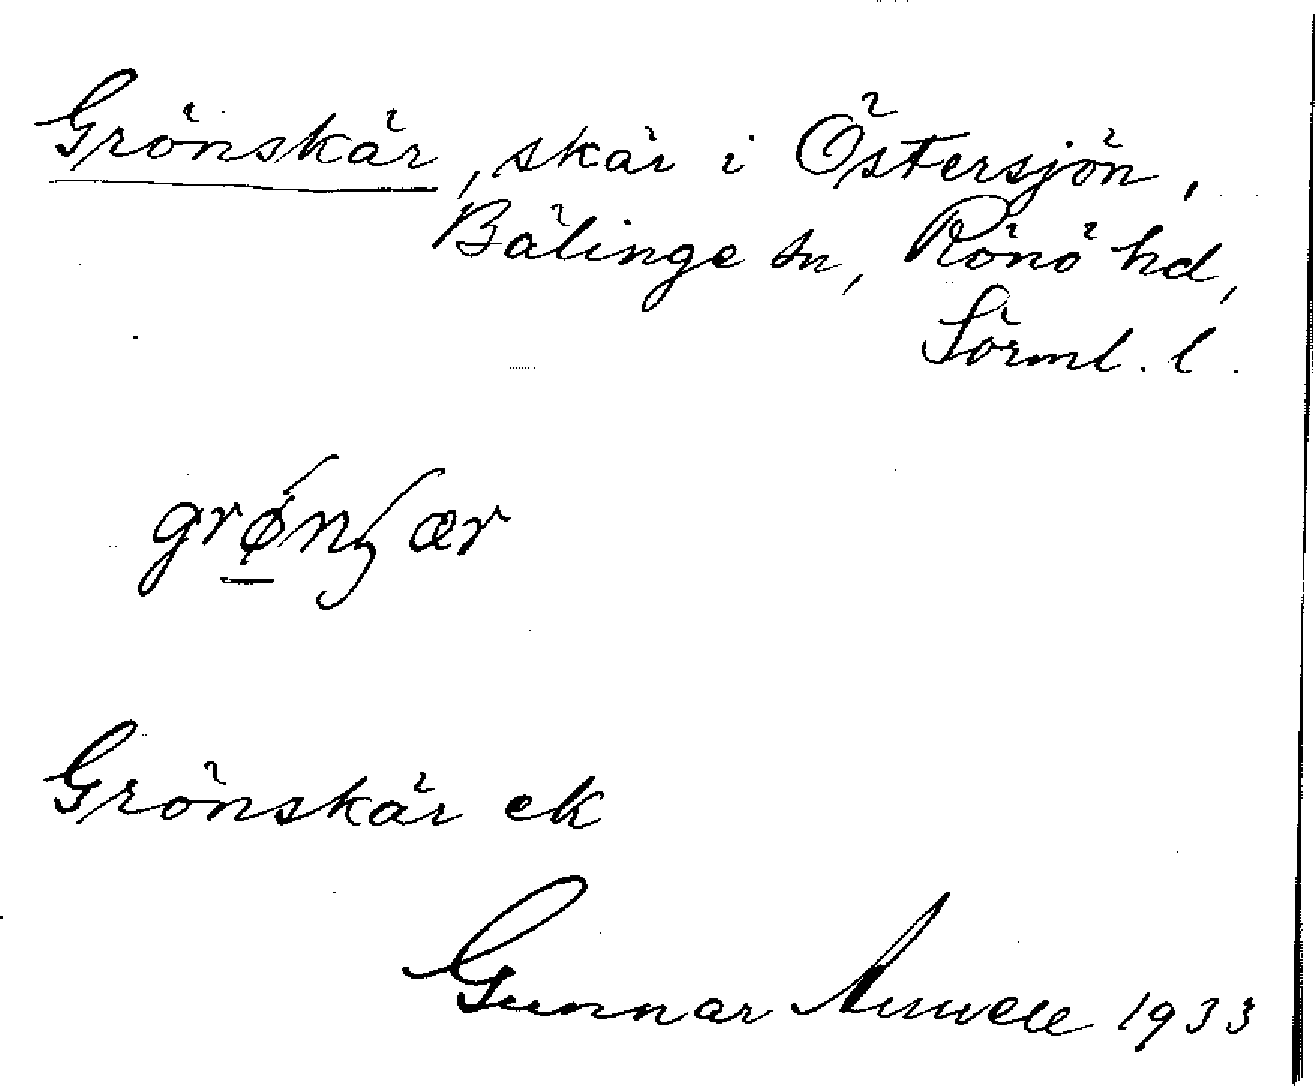 Grönskär, skär i Östersjön,
Bälinge sn, Rönö hd,
Sörml. l.
Grönskär ek
Gunnar 1933